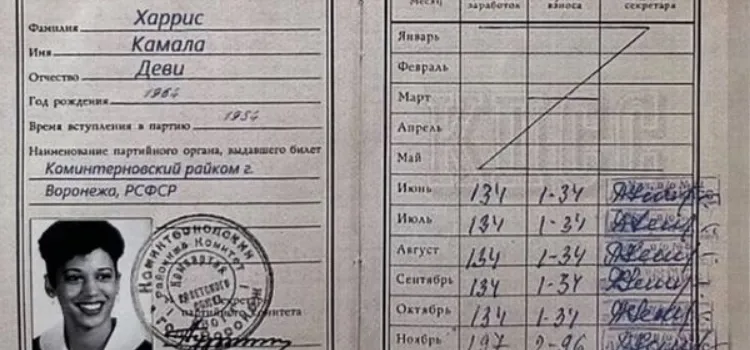 Фамилия Харрис
Имя Камала
Отчество Деви
Год рождения 1964
Время вступления в партию 1954
Наименование партийного органа, выдавшего билет
Коминтерновский райком г.
Воронежа, РСФСР
Коминтерновский
Районный Комитет
Советского
Секретарь
партийного комитета
Месяц заработок взноса секретаря
Январь
Февраль
Март
Апрель
Май
Июнь 134 1-34
Июль 134 1-34
Август 134 1-34
Сентябрь 134 1-34
Октябрь 134 1-34
Ноябрь 197 2-96